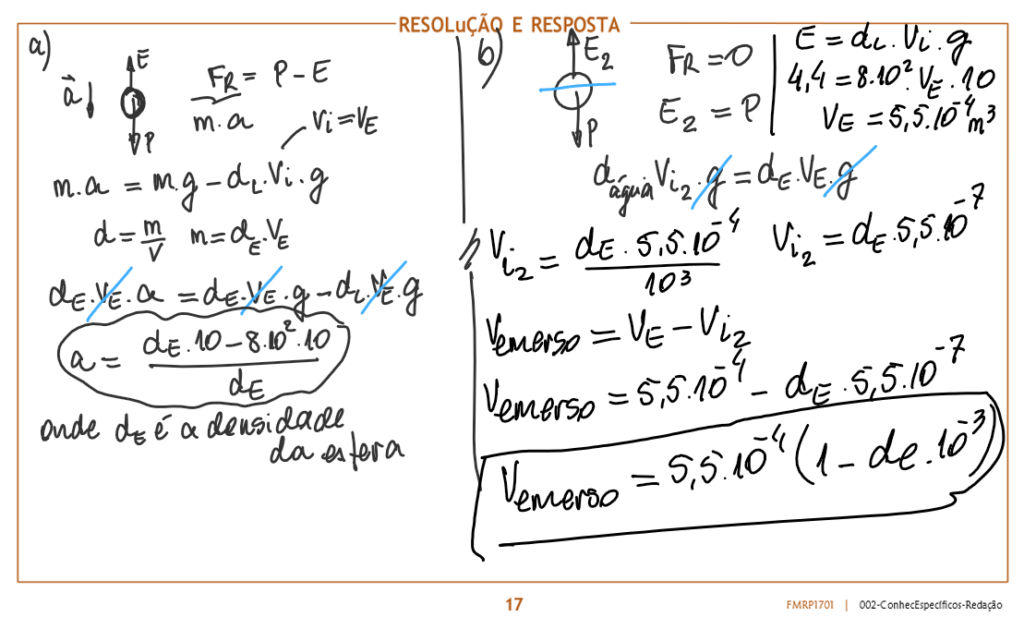 RESOLuÇÃO E RESPOSTA
a)
E
a
P
FR = P - E
m.a
Vi = VE
m.a = m.g - dL.Vi.g
d = m/V m = dE.VE
dE.VE.a = dE.VE.g - dL.VE.g
a = dE.10 - 8.10².10 / dE
onde dE é a densidade
da esfera
b)
E2
P
FR = 0
E2 = P
E = dL.Vi.g
4,4 = 8.10².VE.10
VE = 5,5.10⁻⁴ m³
dágua Vi2.g = dE.VE.g
Vi2 = dE.5,5.10⁻⁴ / 10³
Vi2 = dE.5,5.10⁻⁷
Vemerso = VE - Vi2
Vemerso = 5,5.10⁻⁴ - dE.5,5.10⁻⁷
Vemerso = 5,5.10⁻⁴ (1 - de.10⁻³)
17
FMRP1701 | 002-ConhecEspecíficos-Redação